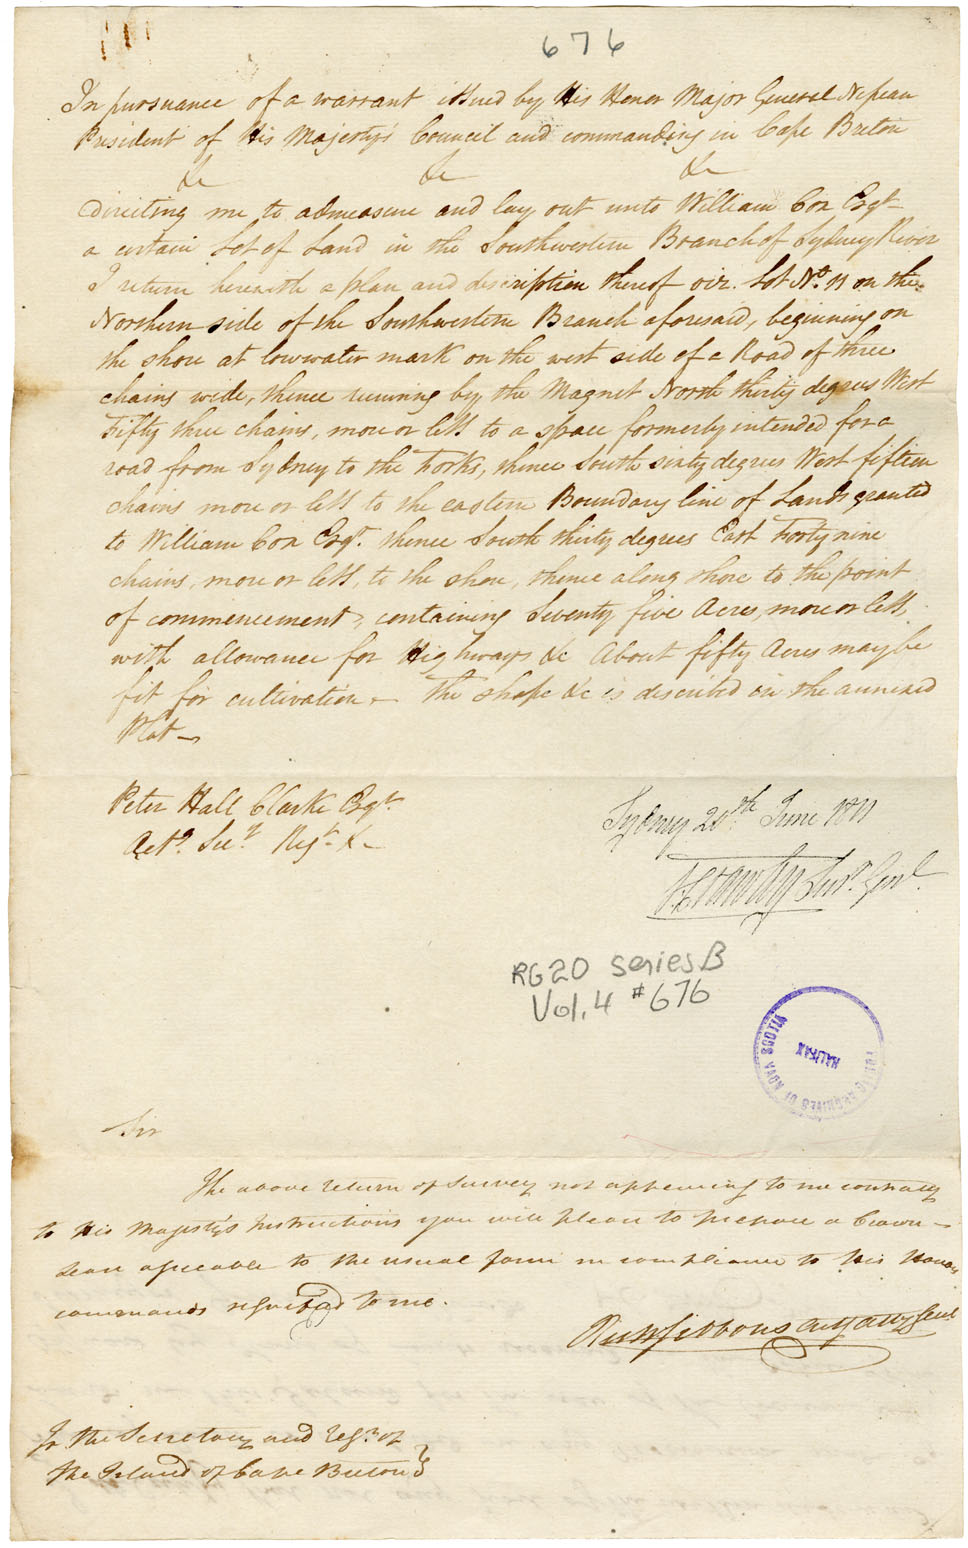 676
In pursuance of a warrant issued by His Honor Major General Nepean
President of His Majesty's Council and commanding in Cape Breton
&c &c &c
directing me to admeasure and lay out unto William Cox Esqr.
a certain Lot of Land in the Southwestern Branch of Sydney River
I return herewith a plan and description thereof viz. Lot No. 11 on the
Northern side of the Southwestern Branch aforesaid, beginning on
the shore at lowwater mark on the west side of a Road of three
chains wide, thence running by the Magnet North thirty degrees West
Fifty three chains, more or less to a space formerly intended for a
road from Sydney to the Forks, thence South sixty degrees West fifteen
chains more or less to the eastern Boundary line of Lands granted
to William Cox Esqr. thence South thirty degrees East Forty nine
chains, more or less, to the shore, thence along shore to the point
of commencement, containing Seventy five Acres, more or less
with allowance for Highways &c About fifty Acres may be
fit for cultivation - The shape &c is described on the annexed
Plat -
Peter Hall Clarke Esqr.
Actg. Secy. Regr. &c
Sydney 20th June 1811
Survr. Genl.
RG20 series B
Vol. 4 #676
PUBLIC ARCHIVES OF NOVA SCOTIA
HALIFAX
Sir
The above return of survey not appearing to me contrary
to His Majesty's Instructions you will please to prepare a Crown
lease agreeable to the usual form in compliance to His Honors
commands signified to me.
Richd Gibbons Actg Atty Genl
To the Secretary and Regr. of
the Island of Cape Breton